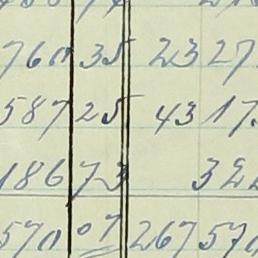 760 35 2327
587 25 4317
186 73 322
570 07 267570